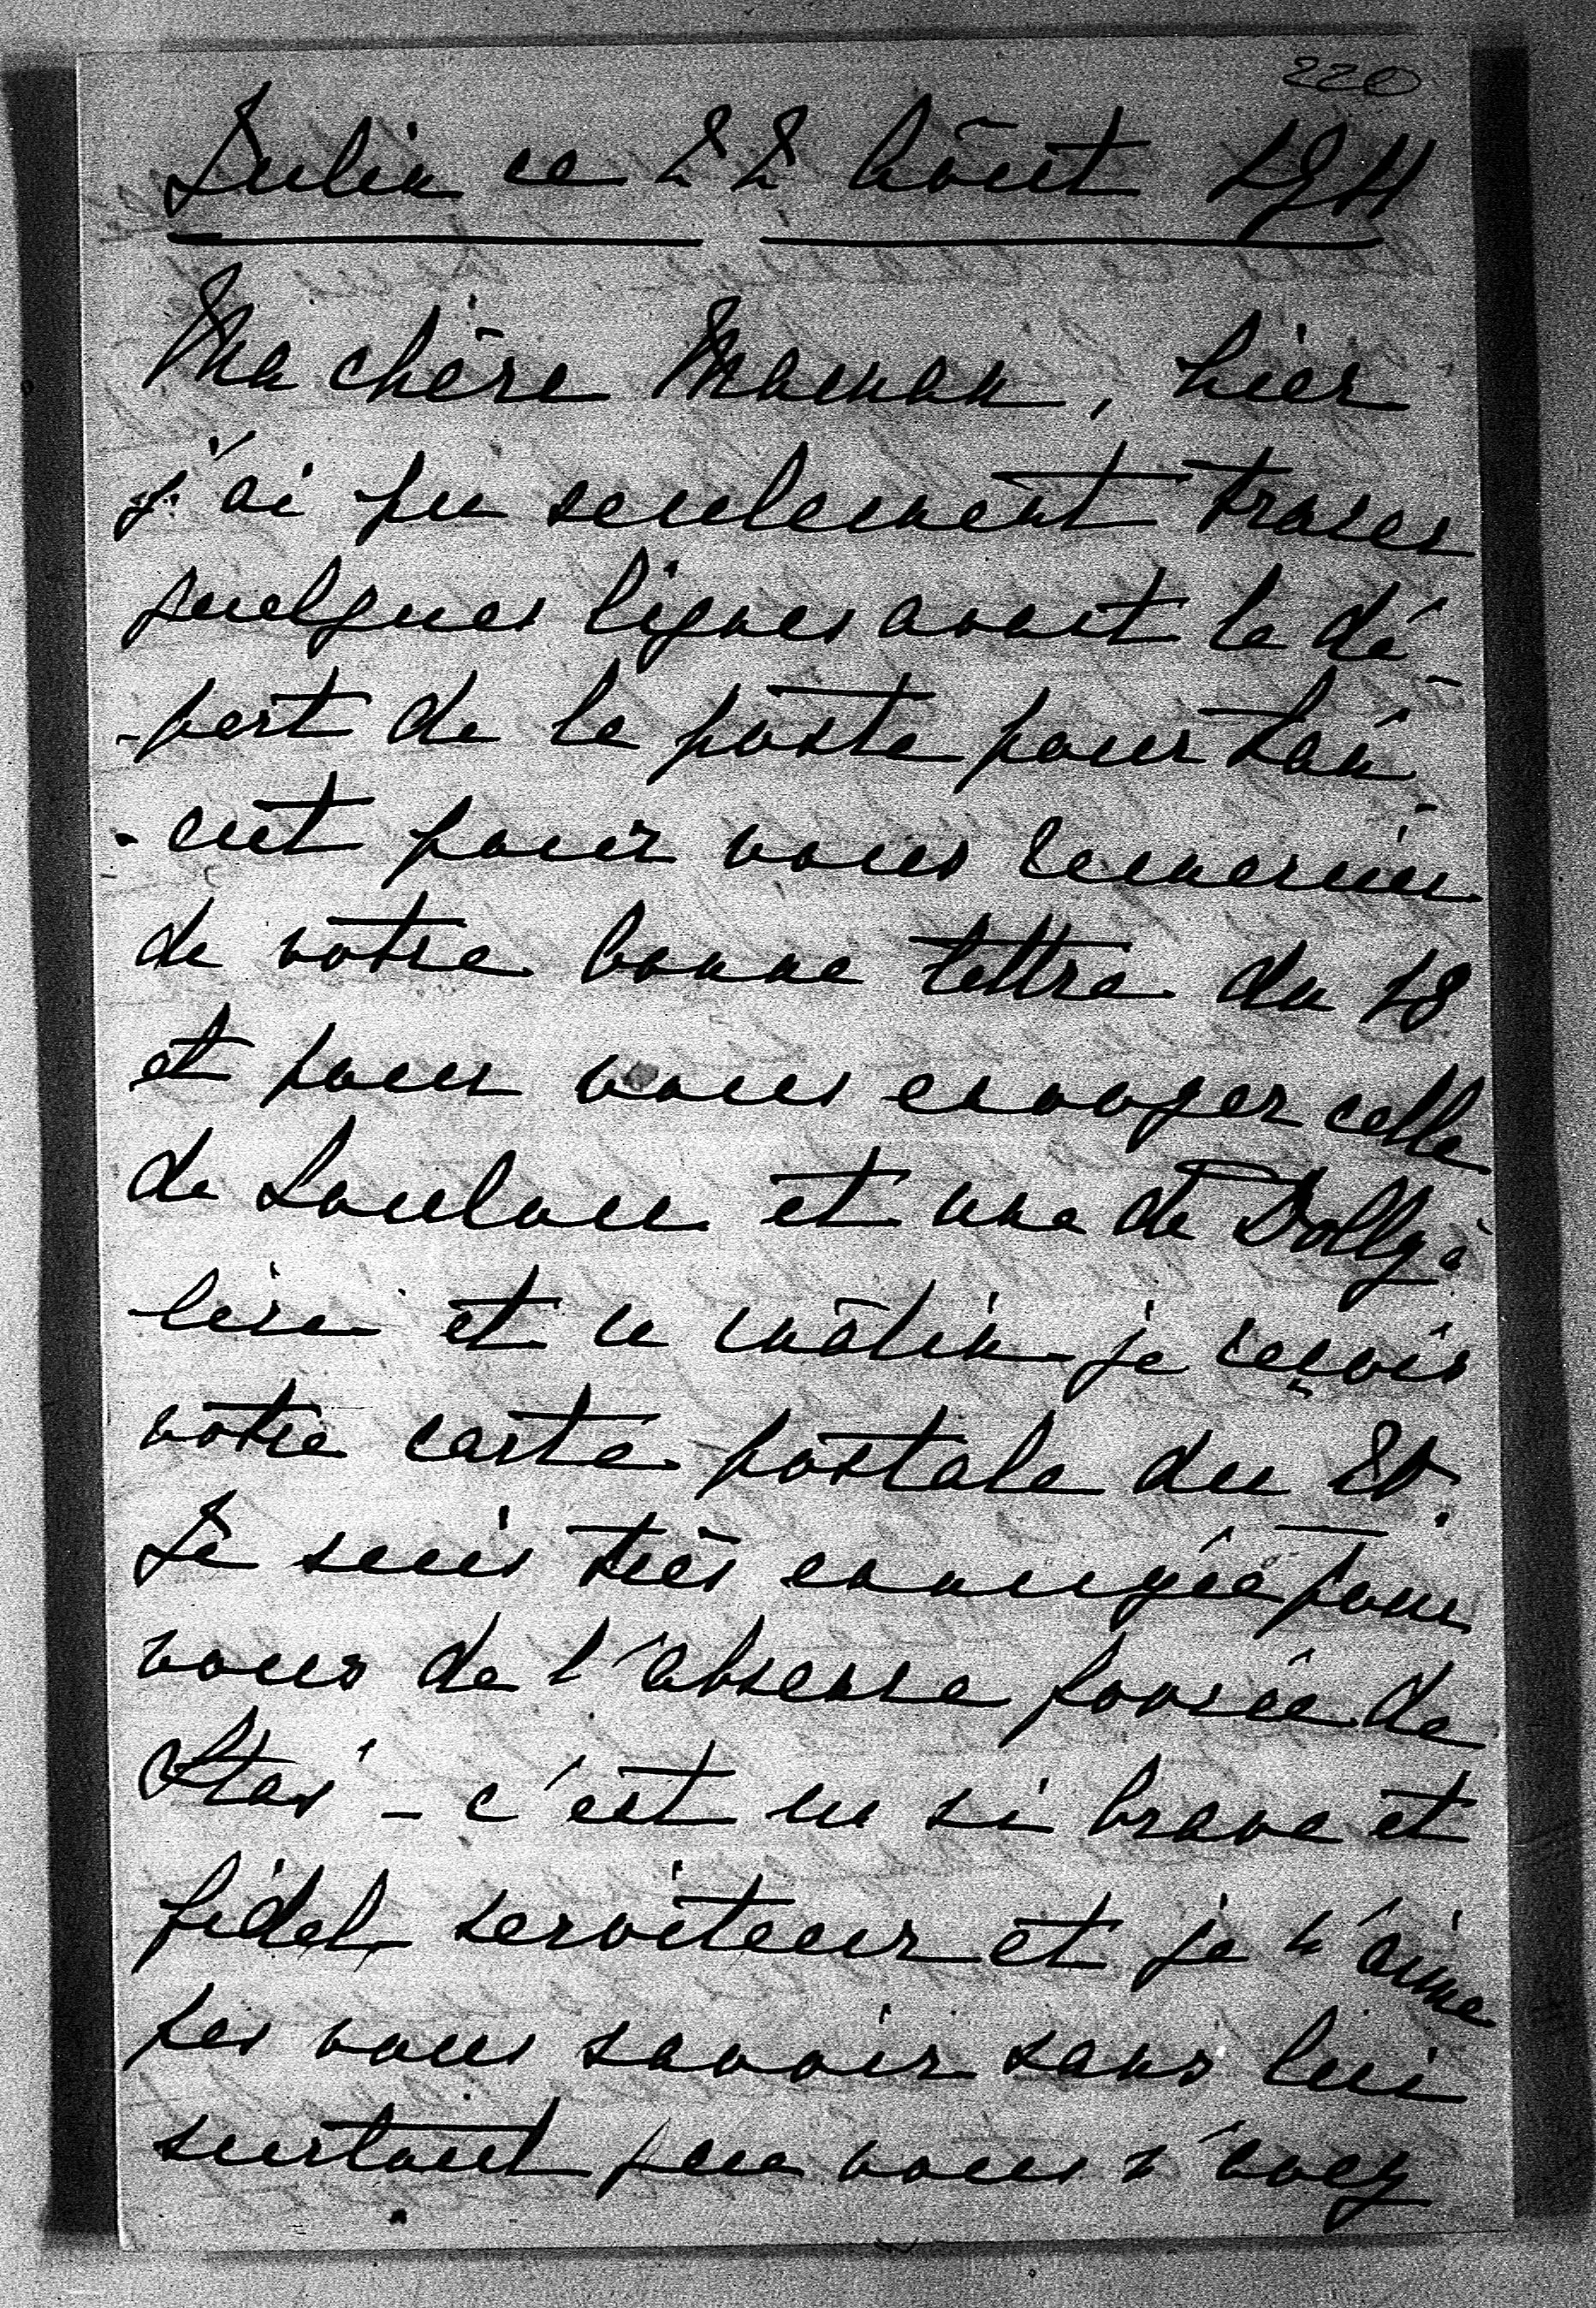 220
Julin ce 22 Août 1911
Ma chère Maman, hier
j'ai pu seulement tracer
quelques lignes avant le dé
-part de la poste pour Łań
-cut pour vous remercier
de votre bonne lettre du 18
et pour vous envoyer celle
de Loulou et une de Dolly à
lire et ce matin je reçois
votre carte postale du 20.
Je suis très ennuyée pour
vous de l'absence forcée de
Staś - c'est un si brave et
fidel serviteur et je n'aime
pas vous savoir sans lui
surtout que vous n'avez